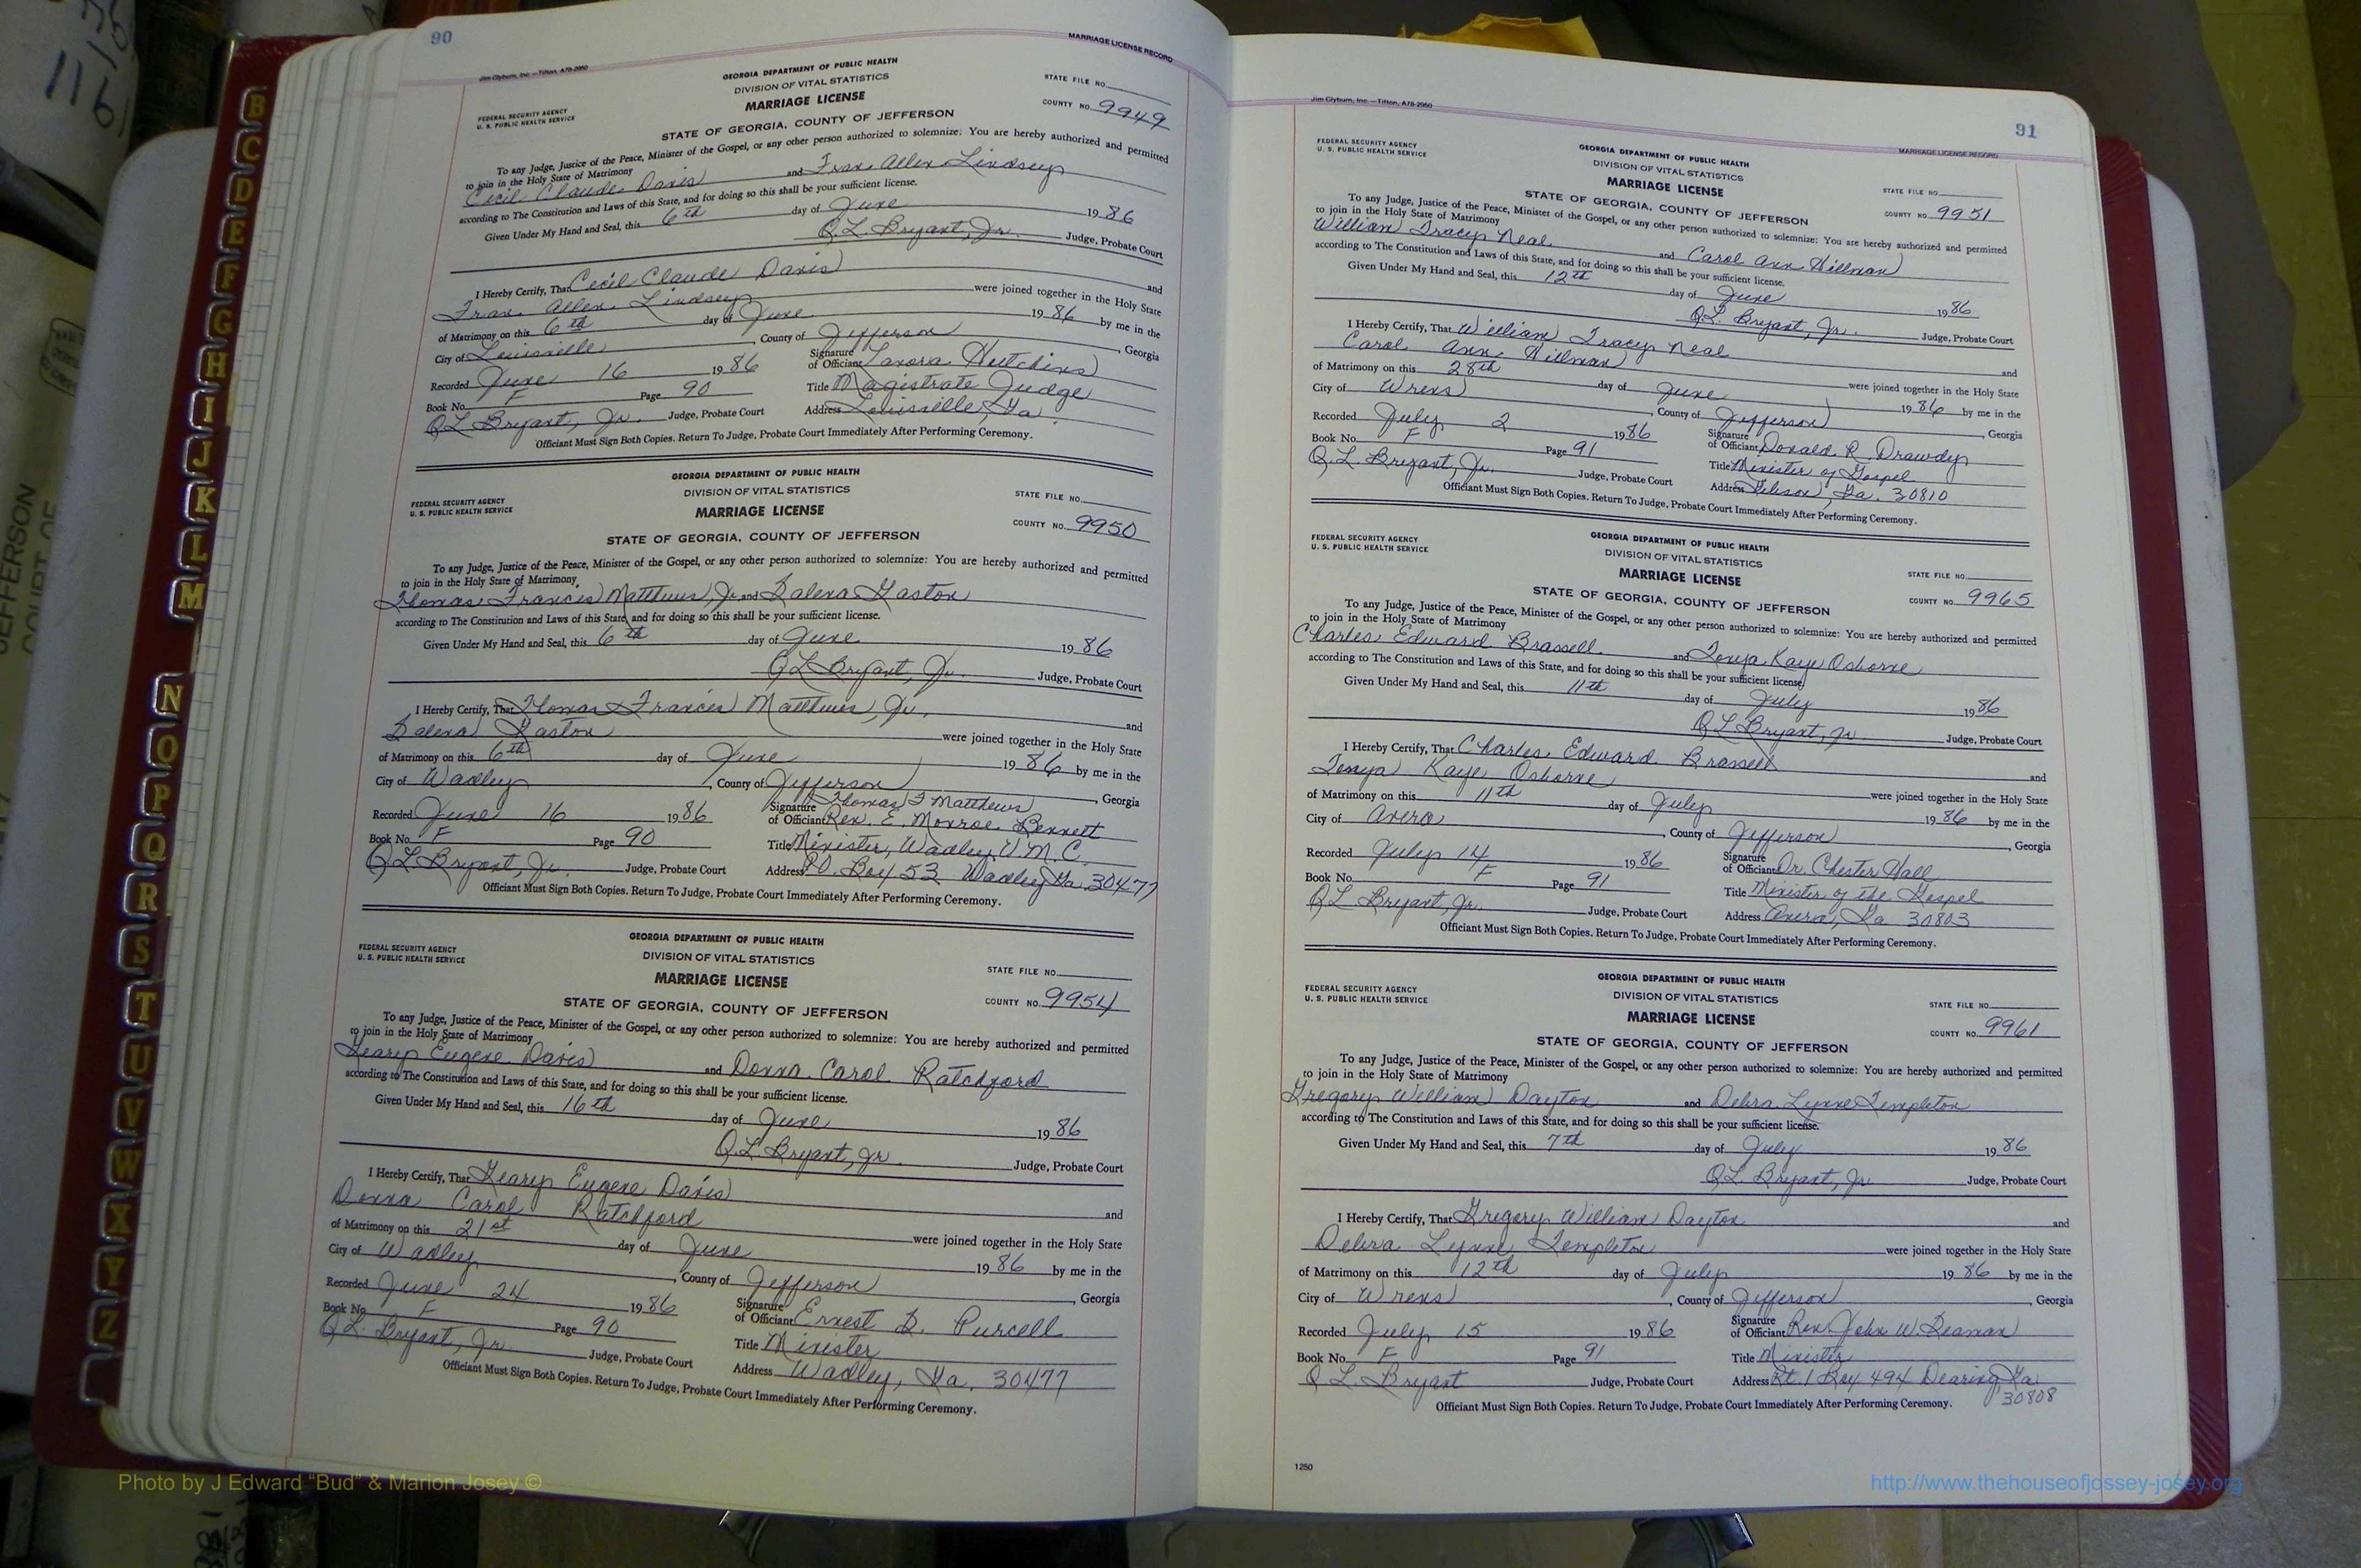 90
MARRIAGE LICENSE RECORD
Jim Clyburn, Inc.—Tifton, A78-2950
GEORGIA DEPARTMENT OF PUBLIC HEALTH
DIVISION OF VITAL STATISTICS
MARRIAGE LICENSE
STATE FILE NO.
FEDERAL SECURITY AGENCY
U. S. PUBLIC HEALTH SERVICE
COUNTY NO. 9949
STATE OF GEORGIA, COUNTY OF JEFFERSON
To any Judge, Justice of the Peace, Minister of the Gospel, or any other person authorized to solemnize: You are hereby authorized and permitted
to join in the Holy State of Matrimony
Cecil Claude Davis and Fran Allen Lindsey
according to The Constitution and Laws of this State, and for doing so this shall be your sufficient license.
Given Under My Hand and Seal, this 6th day of June 1986
Q.L. Bryant, Jr. Judge, Probate Court
I Hereby Certify, That Cecil Claude Davis and
Fran Allen Lindsey were joined together in the Holy State
of Matrimony on this 6th day of June 1986 by me in the
City of Louisville, County of Jefferson, Georgia
Recorded June 16 1986 Signature of Officiant Lavora Hutchins
Book No. F Page 90 Title Magistrate Judge
Q L Bryant, Jr. Judge, Probate Court Address Louisville, Ga.
Officiant Must Sign Both Copies. Return To Judge, Probate Court Immediately After Performing Ceremony.
GEORGIA DEPARTMENT OF PUBLIC HEALTH
DIVISION OF VITAL STATISTICS
MARRIAGE LICENSE
STATE FILE NO.
FEDERAL SECURITY AGENCY
U. S. PUBLIC HEALTH SERVICE
COUNTY NO. 9950
STATE OF GEORGIA, COUNTY OF JEFFERSON
To any Judge, Justice of the Peace, Minister of the Gospel, or any other person authorized to solemnize: You are hereby authorized and permitted
to join in the Holy State of Matrimony
Thomas Francis Matthews, Jr. and Salena Gaston
according to The Constitution and Laws of this State, and for doing so this shall be your sufficient license.
Given Under My Hand and Seal, this 6th day of June 1986
Q L Bryant, Jr. Judge, Probate Court
I Hereby Certify, That Thomas Francis Matthews, Jr. and
Salena Gaston were joined together in the Holy State
of Matrimony on this 6th day of June 1986 by me in the
City of Wadley, County of Jefferson, Georgia
Thomas F Matthews
Recorded June 16 1986 Signature of Officiant Rev. E. Monroe Bennett
Book No. F Page 90 Title Minister, Wadley U.M.C.
Q L Bryant, Jr. Judge, Probate Court Address P.O. Box 53 Wadley Ga. 30477
Officiant Must Sign Both Copies. Return To Judge, Probate Court Immediately After Performing Ceremony.
GEORGIA DEPARTMENT OF PUBLIC HEALTH
DIVISION OF VITAL STATISTICS
MARRIAGE LICENSE
STATE FILE NO.
FEDERAL SECURITY AGENCY
U. S. PUBLIC HEALTH SERVICE
COUNTY NO. 9954
STATE OF GEORGIA, COUNTY OF JEFFERSON
To any Judge, Justice of the Peace, Minister of the Gospel, or any other person authorized to solemnize: You are hereby authorized and permitted
to join in the Holy State of Matrimony
Geary Eugene Davis and Donna Carol Ratchford
according to The Constitution and Laws of this State, and for doing so this shall be your sufficient license.
Given Under My Hand and Seal, this 16th day of June 1986
Q.L Bryant, Jr. Judge, Probate Court
I Hereby Certify, That Geary Eugene Davis and
Donna Carol Ratchford were joined together in the Holy State
of Matrimony on this 21st day of June 1986 by me in the
City of Wadley, County of Jefferson, Georgia
Recorded June 24 1986 Signature of Officiant Ernest B. Purcell
Book No. F Page 90 Title Minister
Q.L. Bryant, Jr. Judge, Probate Court Address Wadley, Ga. 30477
Officiant Must Sign Both Copies. Return To Judge, Probate Court Immediately After Performing Ceremony.
Jim Clyburn, Inc.—Tifton, A78-2950
91
MARRIAGE LICENSE RECORD
FEDERAL SECURITY AGENCY
U. S. PUBLIC HEALTH SERVICE
GEORGIA DEPARTMENT OF PUBLIC HEALTH
DIVISION OF VITAL STATISTICS
MARRIAGE LICENSE
STATE FILE NO.
STATE OF GEORGIA, COUNTY OF JEFFERSON
COUNTY NO. 9951
To any Judge, Justice of the Peace, Minister of the Gospel, or any other person authorized to solemnize: You are hereby authorized and permitted
to join in the Holy State of Matrimony
William Tracy Neal and Carol Ann Hillman
according to The Constitution and Laws of this State, and for doing so this shall be your sufficient license.
Given Under My Hand and Seal, this 12th day of June 1986
Q.L. Bryant, Jr. Judge, Probate Court
I Hereby Certify, That William Tracy Neal and
Carol Ann Hillman were joined together in the Holy State
of Matrimony on this 28th day of June 1986 by me in the
City of Wrens, County of Jefferson, Georgia
Recorded July 2 1986 Signature of Officiant Donald R. Drawdy
Book No. F Page 91 Title Minister of Gospel
Q.L. Bryant, Jr. Judge, Probate Court Address Gibson, Ga. 30810
Officiant Must Sign Both Copies. Return To Judge, Probate Court Immediately After Performing Ceremony.
FEDERAL SECURITY AGENCY
U. S. PUBLIC HEALTH SERVICE
GEORGIA DEPARTMENT OF PUBLIC HEALTH
DIVISION OF VITAL STATISTICS
MARRIAGE LICENSE
STATE FILE NO.
STATE OF GEORGIA, COUNTY OF JEFFERSON
COUNTY NO. 9965
To any Judge, Justice of the Peace, Minister of the Gospel, or any other person authorized to solemnize: You are hereby authorized and permitted
to join in the Holy State of Matrimony
Charles Edward Brassell and Tonya Kaye Osborne
according to The Constitution and Laws of this State, and for doing so this shall be your sufficient license.
Given Under My Hand and Seal, this 11th day of July 1986
Q L Bryant, Jr. Judge, Probate Court
I Hereby Certify, That Charles Edward Brassell and
Tonya Kaye Osborne were joined together in the Holy State
of Matrimony on this 11th day of July 1986 by me in the
City of Avera, County of Jefferson, Georgia
Recorded July 14 1986 Signature of Officiant Dr. Chester Hall
Book No. F Page 91 Title Minister of the Gospel
Q L Bryant, Jr. Judge, Probate Court Address Avera, Ga 30803
Officiant Must Sign Both Copies. Return To Judge, Probate Court Immediately After Performing Ceremony.
GEORGIA DEPARTMENT OF PUBLIC HEALTH
FEDERAL SECURITY AGENCY
U. S. PUBLIC HEALTH SERVICE
DIVISION OF VITAL STATISTICS
MARRIAGE LICENSE
STATE FILE NO.
COUNTY NO. 9961
STATE OF GEORGIA, COUNTY OF JEFFERSON
To any Judge, Justice of the Peace, Minister of the Gospel, or any other person authorized to solemnize: You are hereby authorized and permitted
to join in the Holy State of Matrimony
Gregory William Dayton and Debra Lynne Templeton
according to The Constitution and Laws of this State, and for doing so this shall be your sufficient license.
Given Under My Hand and Seal, this 7th day of July 1986
Q.L. Bryant, Jr. Judge, Probate Court
I Hereby Certify, That Gregory William Dayton and
Debra Lynne Templeton were joined together in the Holy State
of Matrimony on this 12th day of July 1986 by me in the
City of Wrens, County of Jefferson, Georgia
Recorded July 15 1986 Signature of Officiant Rev. John W. Seaman
Book No. F Page 91 Title Minister
Q L Bryant Judge, Probate Court Address Rt. 1 Box 494 Dearing Ga
30808
Officiant Must Sign Both Copies. Return To Judge, Probate Court Immediately After Performing Ceremony.
1250
B
C
D
E
F
G
H
I
J
K
L
M
N
O
P
Q
R
S
T
U
V
W
X
Y
Z
JEFFERSON
COURT OF
Photo by J Edward “Bud” & Marion Josey ©
http://www.thehouseofjossey-josey.org